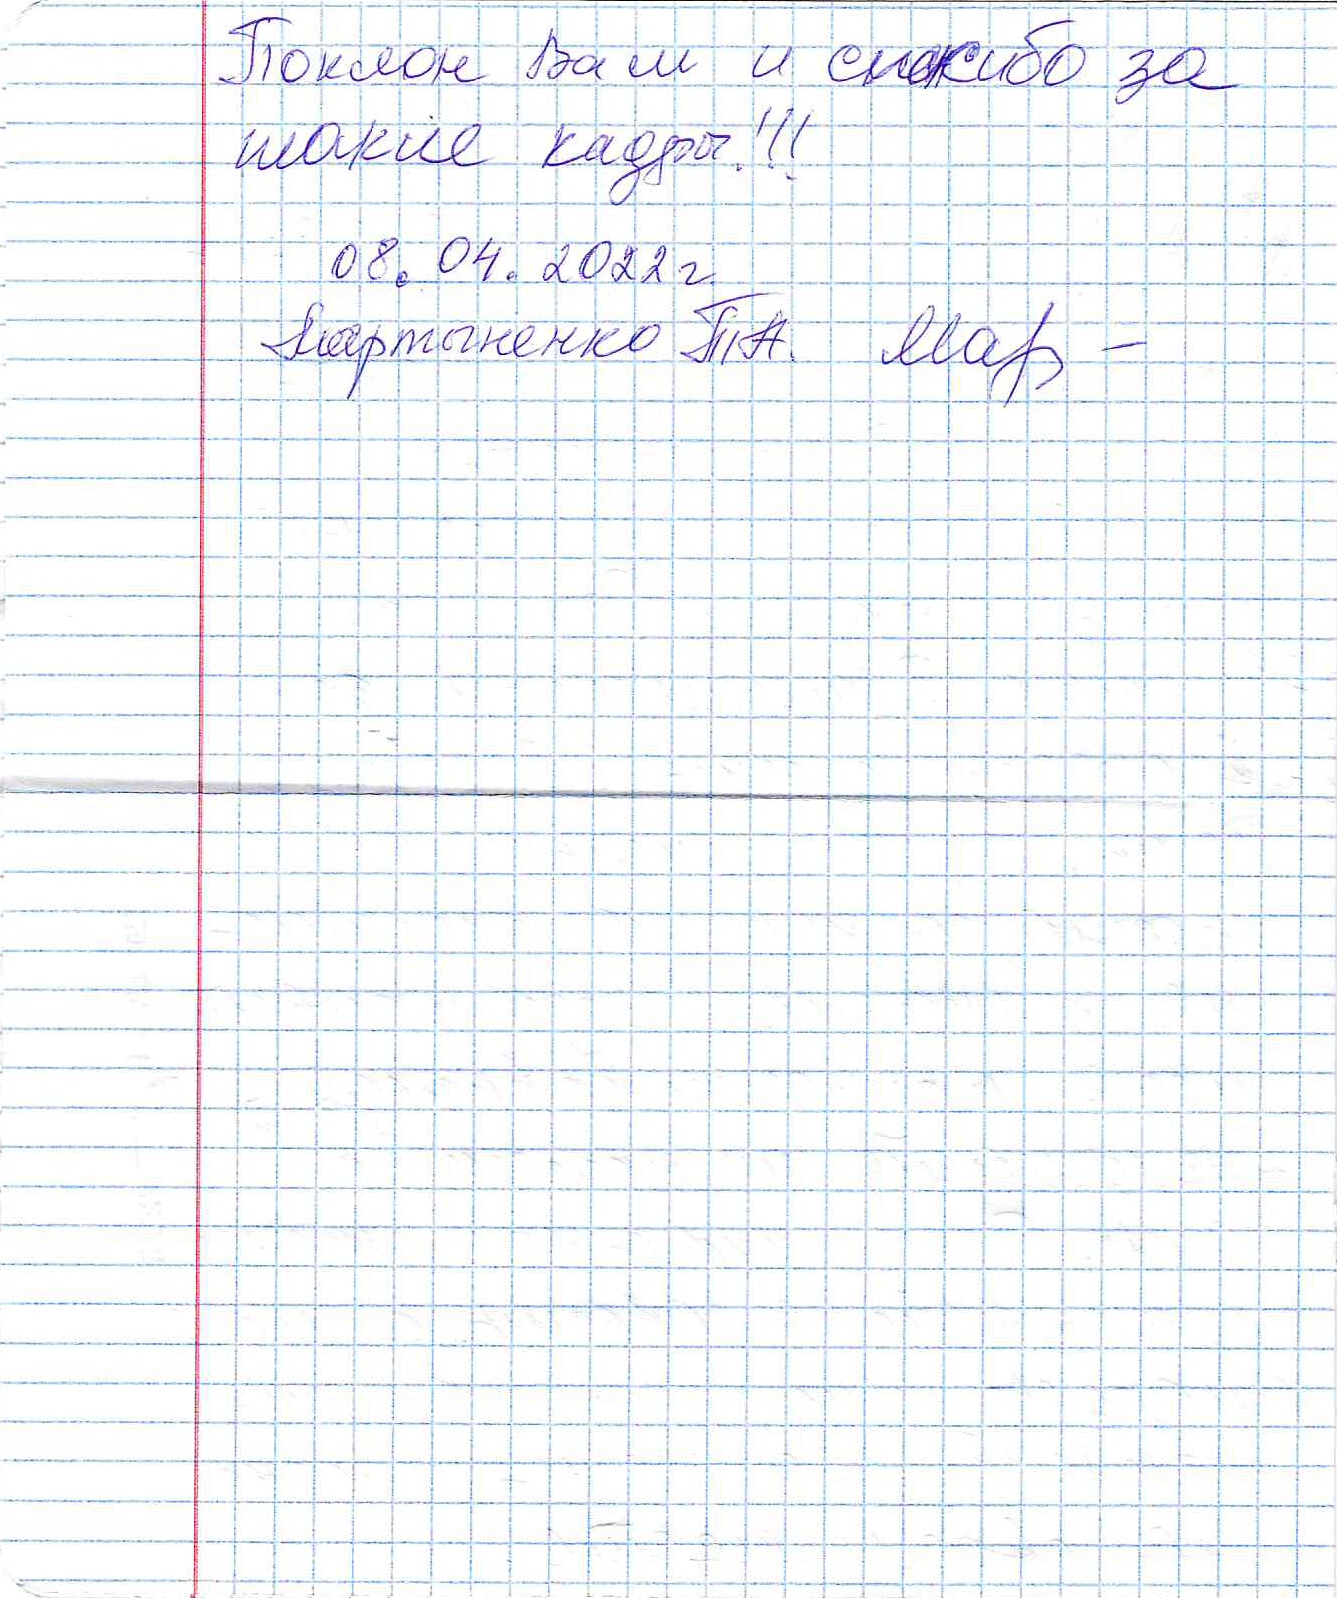 Поклон Вам и спасибо за
такие кадры!!!
08.04.2022г.
Мартыненко Т.А. Мар-